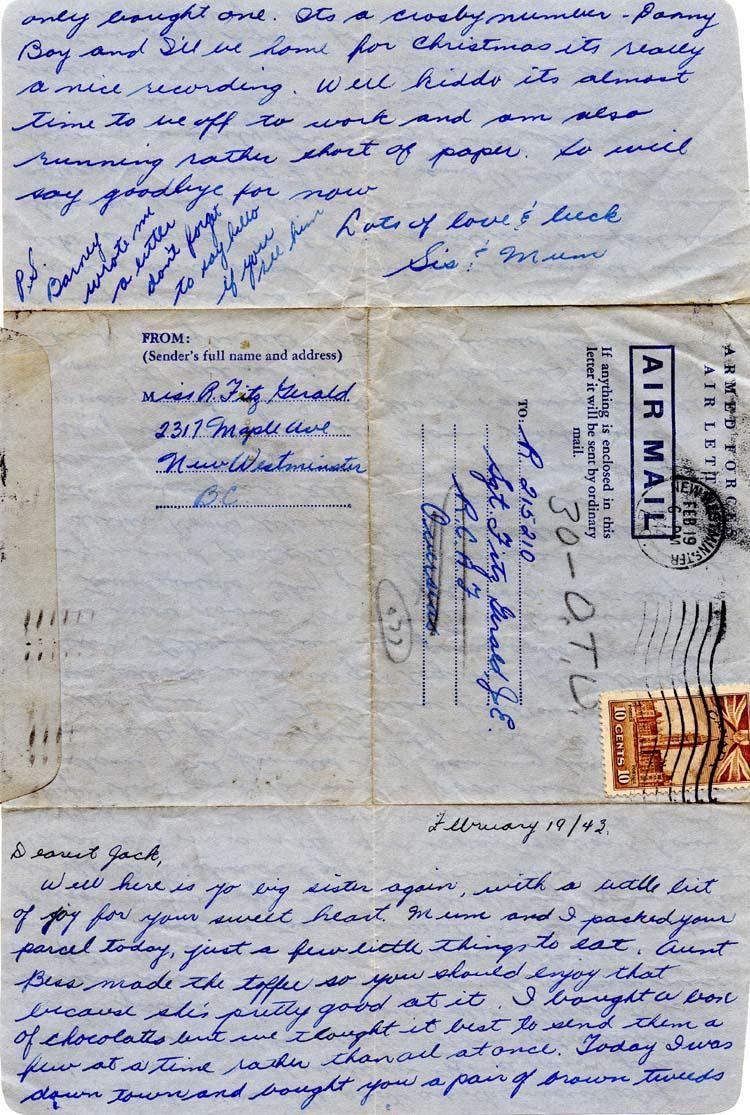 only bought one. Its a crosby number - Danny
Boy and I'll be home for Christmas its really
a nice recording. Well kiddo its almost
time to be off to work and am also
running rather short of paper. So will
say goodbye for now
Lots of love & luck
Sis & Mum
P.S.
Barney
wrote me
a letter
don't forget
to say hello
if you
see him
FROM:
(Sender's full name and address)
Miss R. Fitz Gerald
2317 Maple Ave
New Westminster
BC
ARMED FORCES
AIR LETT
AIR MAIL
If anything is enclosed in this
letter it will be sent by ordinary
mail.
NEW WESTMINSTER
FEB 19
6 PM
TO:
R. 215210
Sgt. Fitz Gerald, J.E.
R.C.A.F
Overseas
30 - O.T.U.
10 CENTS 10
February 19/43.
Dearest Jack,
Well here is yo big sister again, with a little bit
of joy for your sweet heart. Mum and I packed your
parcel today, just a few little things to eat. Aunt
Bess made the toffee so you should enjoy that
because she's pretty good at it. I bought a box
of chocolates but we thought it best to send them a
few at a time rather than all at once. Today I was
down town and bought you a pair of brown tweeds